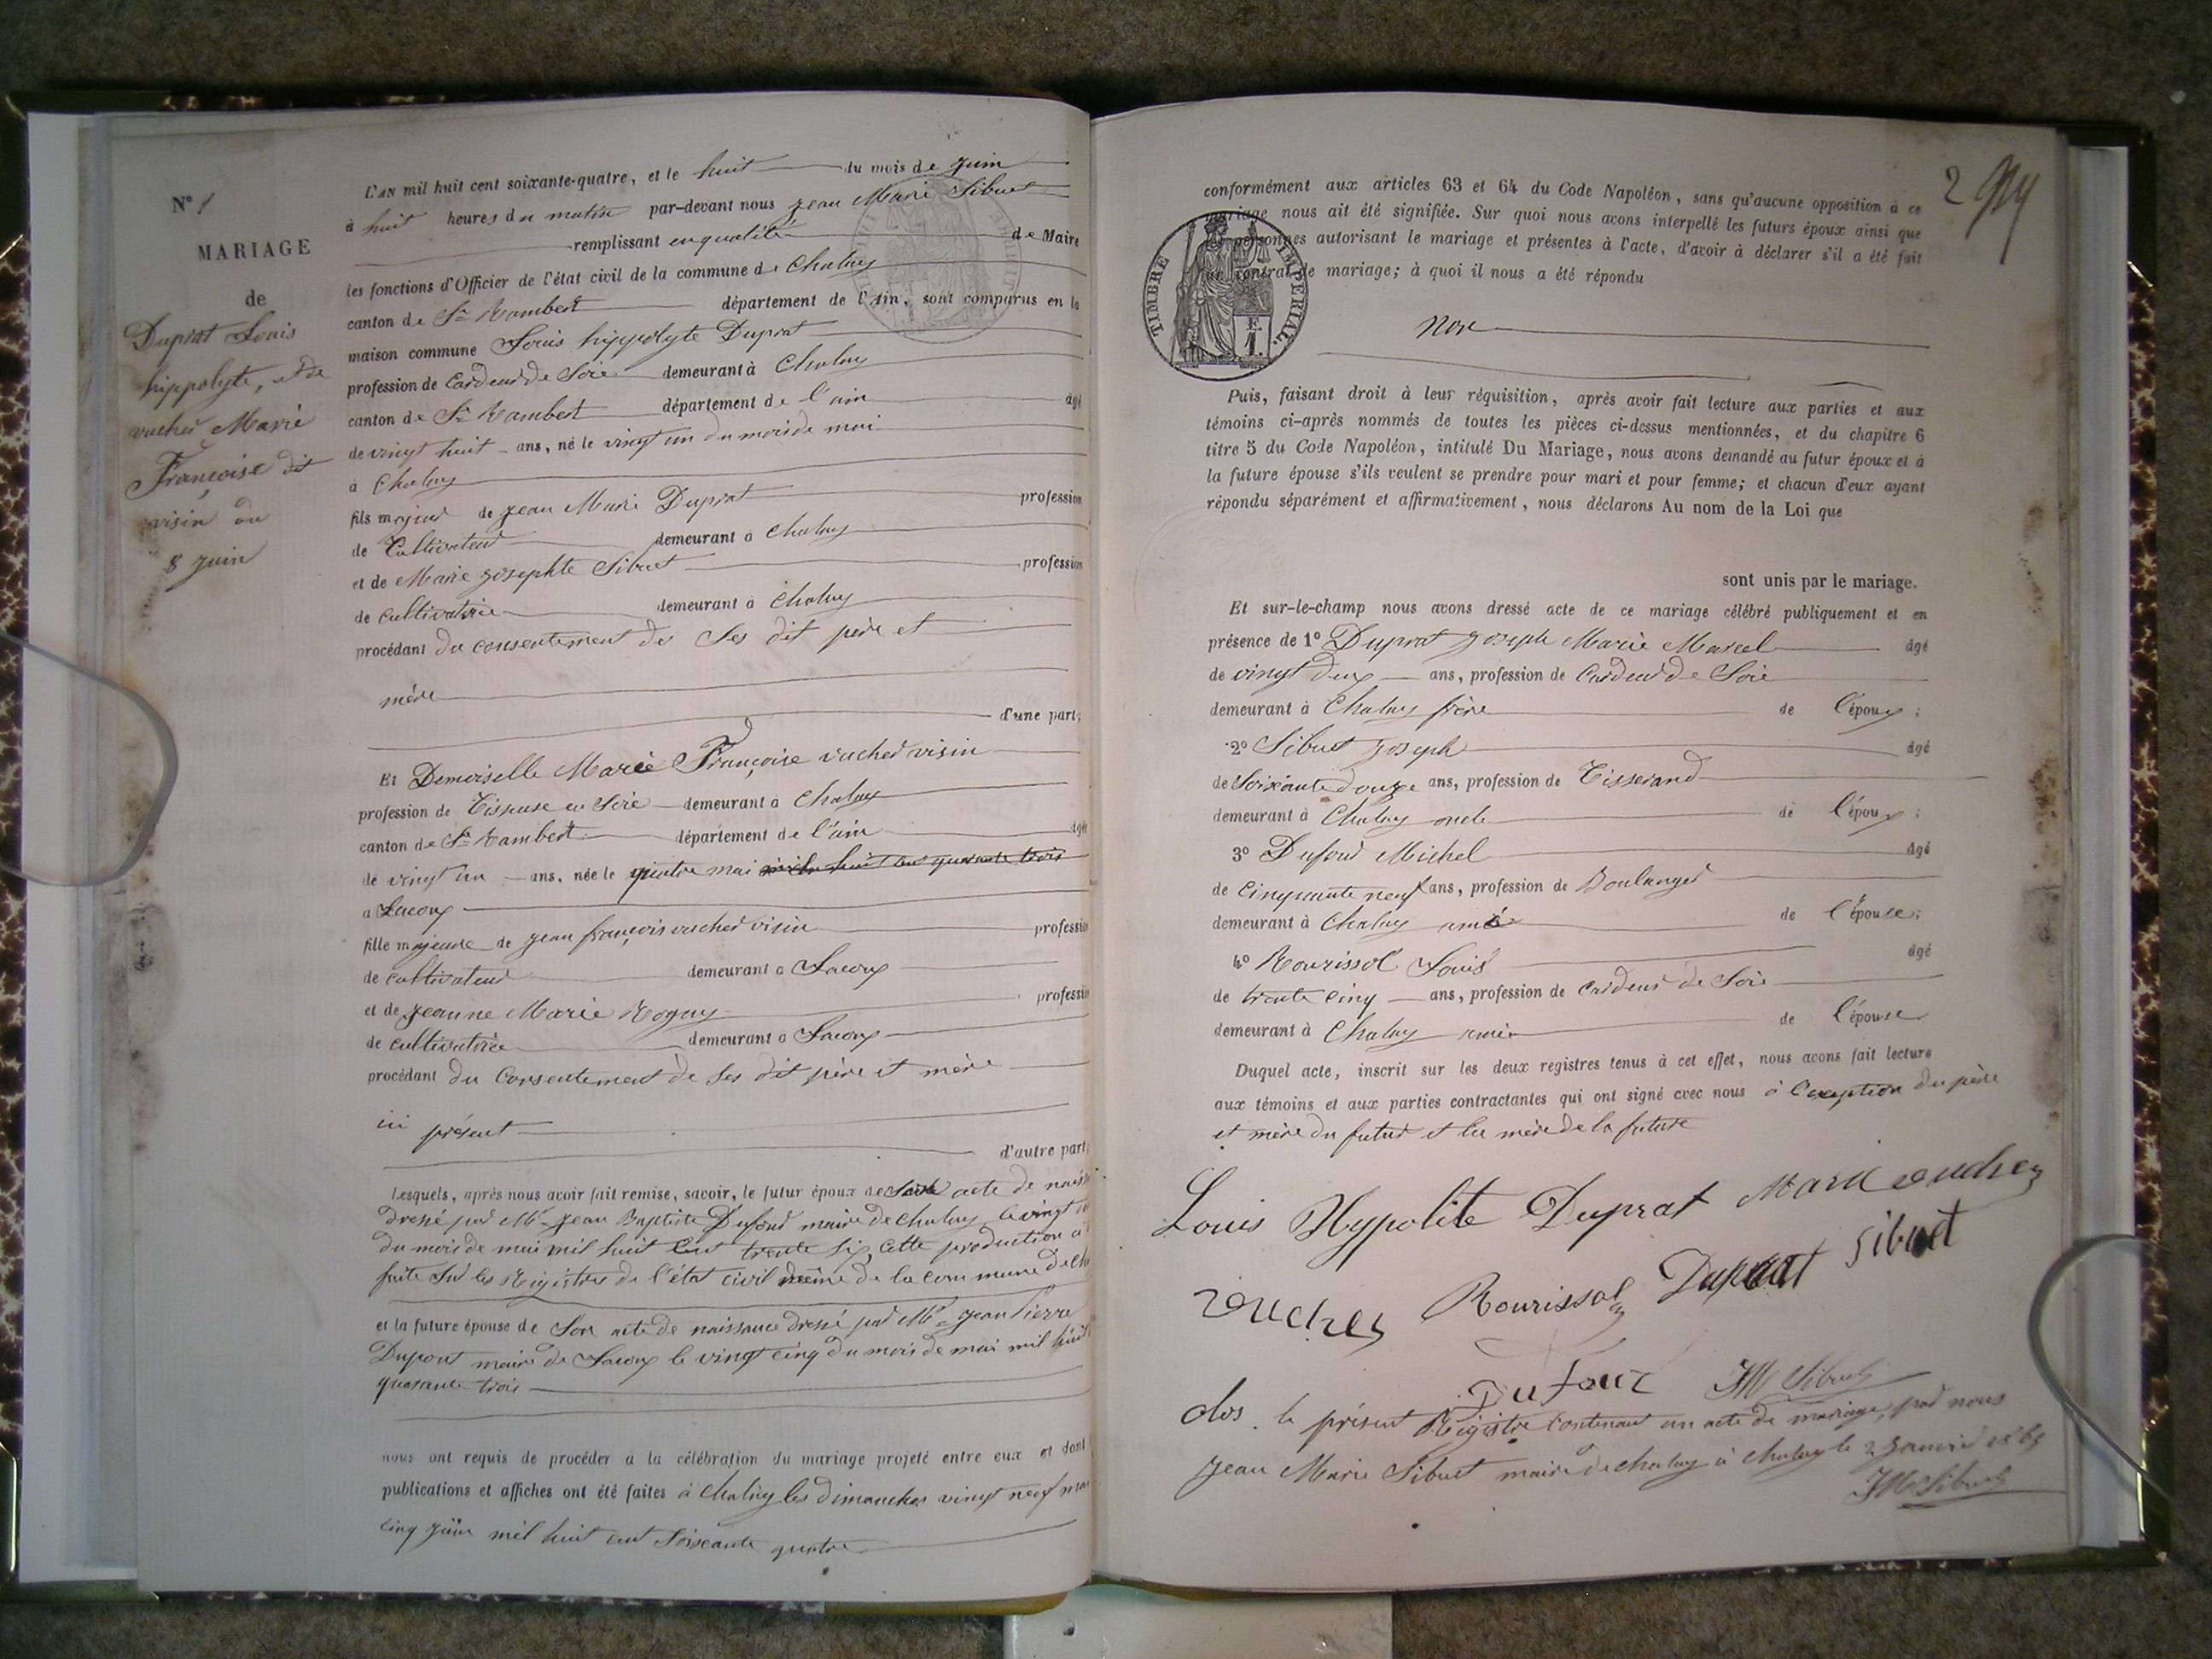 N° 1
MARIAGE
de
Duprat Louis
hippolyte, et de
vucher Marie
Françoise dit
visin du
8 juin
L'AN mil huit cent soixante-quatre, et le huit du mois de juin
à huit heures du matin par-devant nous jean Marie Sibuet
remplissant en qualité de Maire
les fonctions d'Officier de l'état civil de la commune de Chaley
canton de St Rambert département de l'Ain, sont comparus en la
maison commune Louis hippolyte Duprat
profession de Cardeur de Soie demeurant à Chaley
canton de St Rambert département de l'ain âgé
de vingt huit ans, né le vingt un du mois de mai
à Chaley
fils majeur de jean Marie Duprat profession
de Cultivateur demeurant à Chaley
et de Marie josephte Sibuet profession
de cultivatrice demeurant à Chaley
procédant du consentement de Ses dit père et
mère
d'une part;
Et Demoiselle Marie Françoise vucher visin
profession de Tisseuse en Soie demeurant à Chaley
canton de St Rambert département de l'ain âgée
de vingt un ans, née le quatre mai mil huit cent quarante trois
a Lacoux
fille majeure de jean françois vucher visin profession
de cultivateur demeurant a Lacoux
et de jeanne Marie Rogay profession
de cultivatrice demeurant a Lacoux
procédant du Consentement de Ses dit père et mère
ici présent
d'autre part;
Lesquels, après nous avoir fait remise, savoir, le futur époux de Son acte de naiss
dressé par Mr jean Baptiste Dufour maire de chaley le vingt un
du mois de mai mil huit Cent trente six, Cette production a
faite Sur les Registres de l'état civil même de la commune de Ch
et la future épouse de Son acte de naissance dressé par Mr jean Pierre
Dupont maire de Lacoux le vingt cinq du mois de mai mil huit
quarante trois
nous ont requis de procéder à la célébration du mariage projeté entre eux et dont
publications et affiches ont été faites à Chaley les dimanches vingt neuf mai
cinq juin mil huit cent Soixante quatre
2
conformément aux articles 63 et 64 du Code Napoléon, sans qu'aucune opposition à ce
mariage nous ait été signifiée. Sur quoi nous avons interpellé les futurs époux ainsi que
les personnes autorisant le mariage et présentes à l'acte, d'avoir à déclarer s'il a été fait
un contrat de mariage; à quoi il nous a été répondu
TIMBRE IMPERIAL.
F.
1.
Non
Puis, faisant droit à leur réquisition, après avoir fait lecture aux parties et aux
témoins ci-après nommés de toutes les pièces ci-dessus mentionnées, et du chapitre 6
titre 5 du Code Napoléon, intitulé Du Mariage, nous avons demandé au futur époux et à
la future épouse s'ils veulent se prendre pour mari et pour femme; et chacun d'eux ayant
répondu séparément et affirmativement, nous déclarons Au nom de la Loi que
sont unis par le mariage.
Et sur-le-champ nous avons dressé acte de ce mariage célébré publiquement et en
présence de 1° Duprat joseph Marie Marcel âgé
de vingt deux ans, profession de Cardeur de Soie
demeurant à Chaley frère de l'époux;
2° Sibuet joseph âgé
de Soixante douze ans, profession de Tisserand
demeurant à Chaley oncle de l'époux;
3° Dufour Michel âgé
de Cinquante neuf ans, profession de Boulanger
demeurant à Chaley ami de l'épouse;
4° Rourissol Louis âgé
de trente cinq ans, profession de cardeur de Soie
demeurant à Chaley ami de l'épouse
Duquel acte, inscrit sur les deux registres tenus à cet effet, nous avons fait lecture
aux témoins et aux parties contractantes qui ont signé avec nous à l'exeption du père
et mère du futur et la mère de la future
Louis Hypolite Duprat Marie vucher
vucher Rourissol Duprat Sibuet
Dufour JM Sibuet
clos le présent Registre Contenant un acte de mariage, par nous
jean Marie Sibuet maire de chaley à Chaley le 2 janvier 1865
JM Sibuet